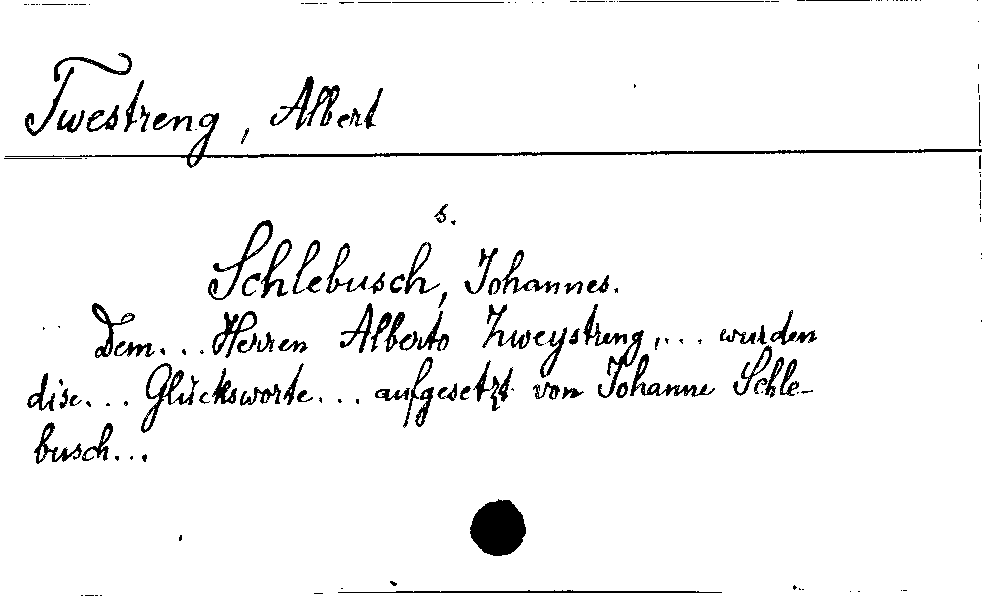 Twestreng, Albert
s.
Schlebusch, Johannes.
Dem... Herren Alberto Zweystreng,... wurden
dise... Glücksworte... aufgesetzt von Johanne Schle-
busch...